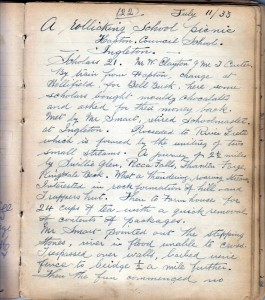 (22) July 11/33
A Rollicking School picnic
Hapton Council School.
Ingleton.
Scholars 21. Mr W Clayton & Mr J Carter
By train from Hapton, change at
Hellifield, for Bell Busk, here some
scholars bought monthly
and asked for their money back.
Met by Mr Smart, retired schoolmaster
at Ingleton. Proceeded to River Twiss
which is formed by the uniting of two
small streams. A journey of 2½ miles
by Swilla Glen, Pecca Falls, Thornton Force
Kingsdale Beck. What a thundering roaring stream
Interested in rock formation of hill and
Trappers hut. Then to Farmhouse for
2d cups of tea with a quick removal
of contents of packages.
Mr Smart pointed out the stepping
stones, river in flood unable to cross.
Trespassed over walls, barbed wire
fence to bridge ½ a mile further.
Then the fun commenced no